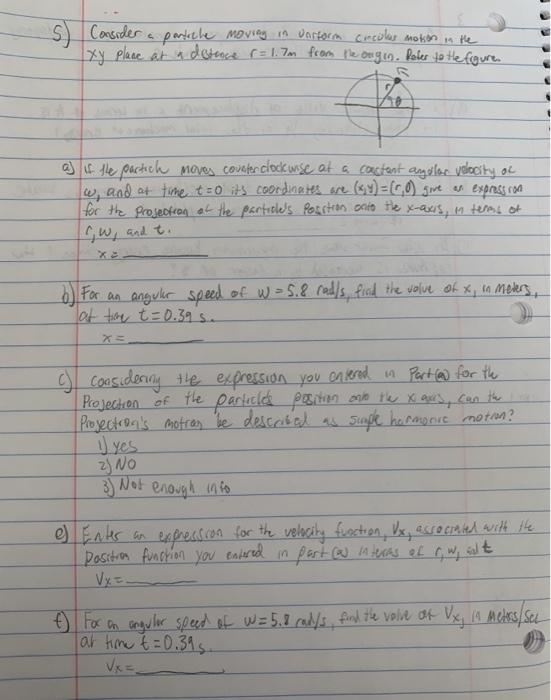 5) Consider a particle moving in uniform circular motion in the
xy plane at a distance r = 1.7m from the origin. Refer to the figure.
r
θ
a) if the particle moves counterclockwise at a constant angular velocity of
ω, and at time t=0 its coordinates are (x,y)=(r,0) give an expression
for the projection of the particle's position onto the x-axis, in terms of
r, w, and t.
x=
b) For an angular speed of w = 5.8 rad/s, find the value of x, in meters,
at time t=0.39 s.
x=
c) considering the expression you entered in Part(a) for the
Projection of the particle's position onto the x axis, can the
Projection's motion be described as simple harmonic motion?
1) yes
2) NO
3) Not enough info
e) Enter an expression for the velocity function, Vx, associated with the
position function you entered in part (a) in terms of r, w, and t
Vx=
f) For an angular speed of w=5.8 rad/s, find the value of Vx, in meters/sec
at time t=0.39 s.
Vx=